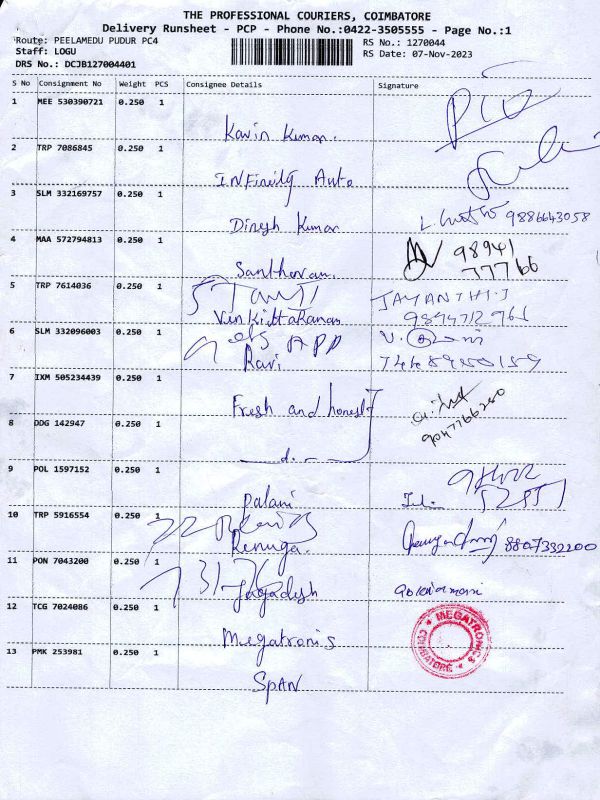 THE PROFESSIONAL COURIERS, COIMBATORE
Delivery Runsheet - PCP - Phone No.:0422-3505555 - Page No.:1
Route: PEELAMEDU PUDUR PC4
RS No.: 1270044
Staff: LOGU
RS Date: 07-Nov-2023
DRS No.: DCJB127004401
S No Consignment No Weight PCS Consignee Details Signature
1 MEE 530390721 0.250 1
Kavin Kumar.
2 TRP 7086845 0.250 1
Infinity Auto
3 SLM 332169757 0.250 1
Dinesh Kumar 9886643058
4 MAA 572794813 0.250 1
98941
77766
Santhanam.
5 TRP 7614036 0.250 1
JAYANTHI.J
Venkittaraman
6 SLM 332096003 0.250 1
Ravi
7 IXM 505234439 0.250 1
Fresh and honest
8 DDG 142947 0.250 1
9047766250
d.
9 POL 1597152 0.250 1
Palani
10 TRP 5916554 0.250 1
Renuga. 8807332200
11 PON 7043200 0.250 1
Jagadesh
12 TCG 7024086 0.250 1
MEGATRONICS
COIMBATORE
Megatronis
13 PMK 253981 0.250 1
SPAN